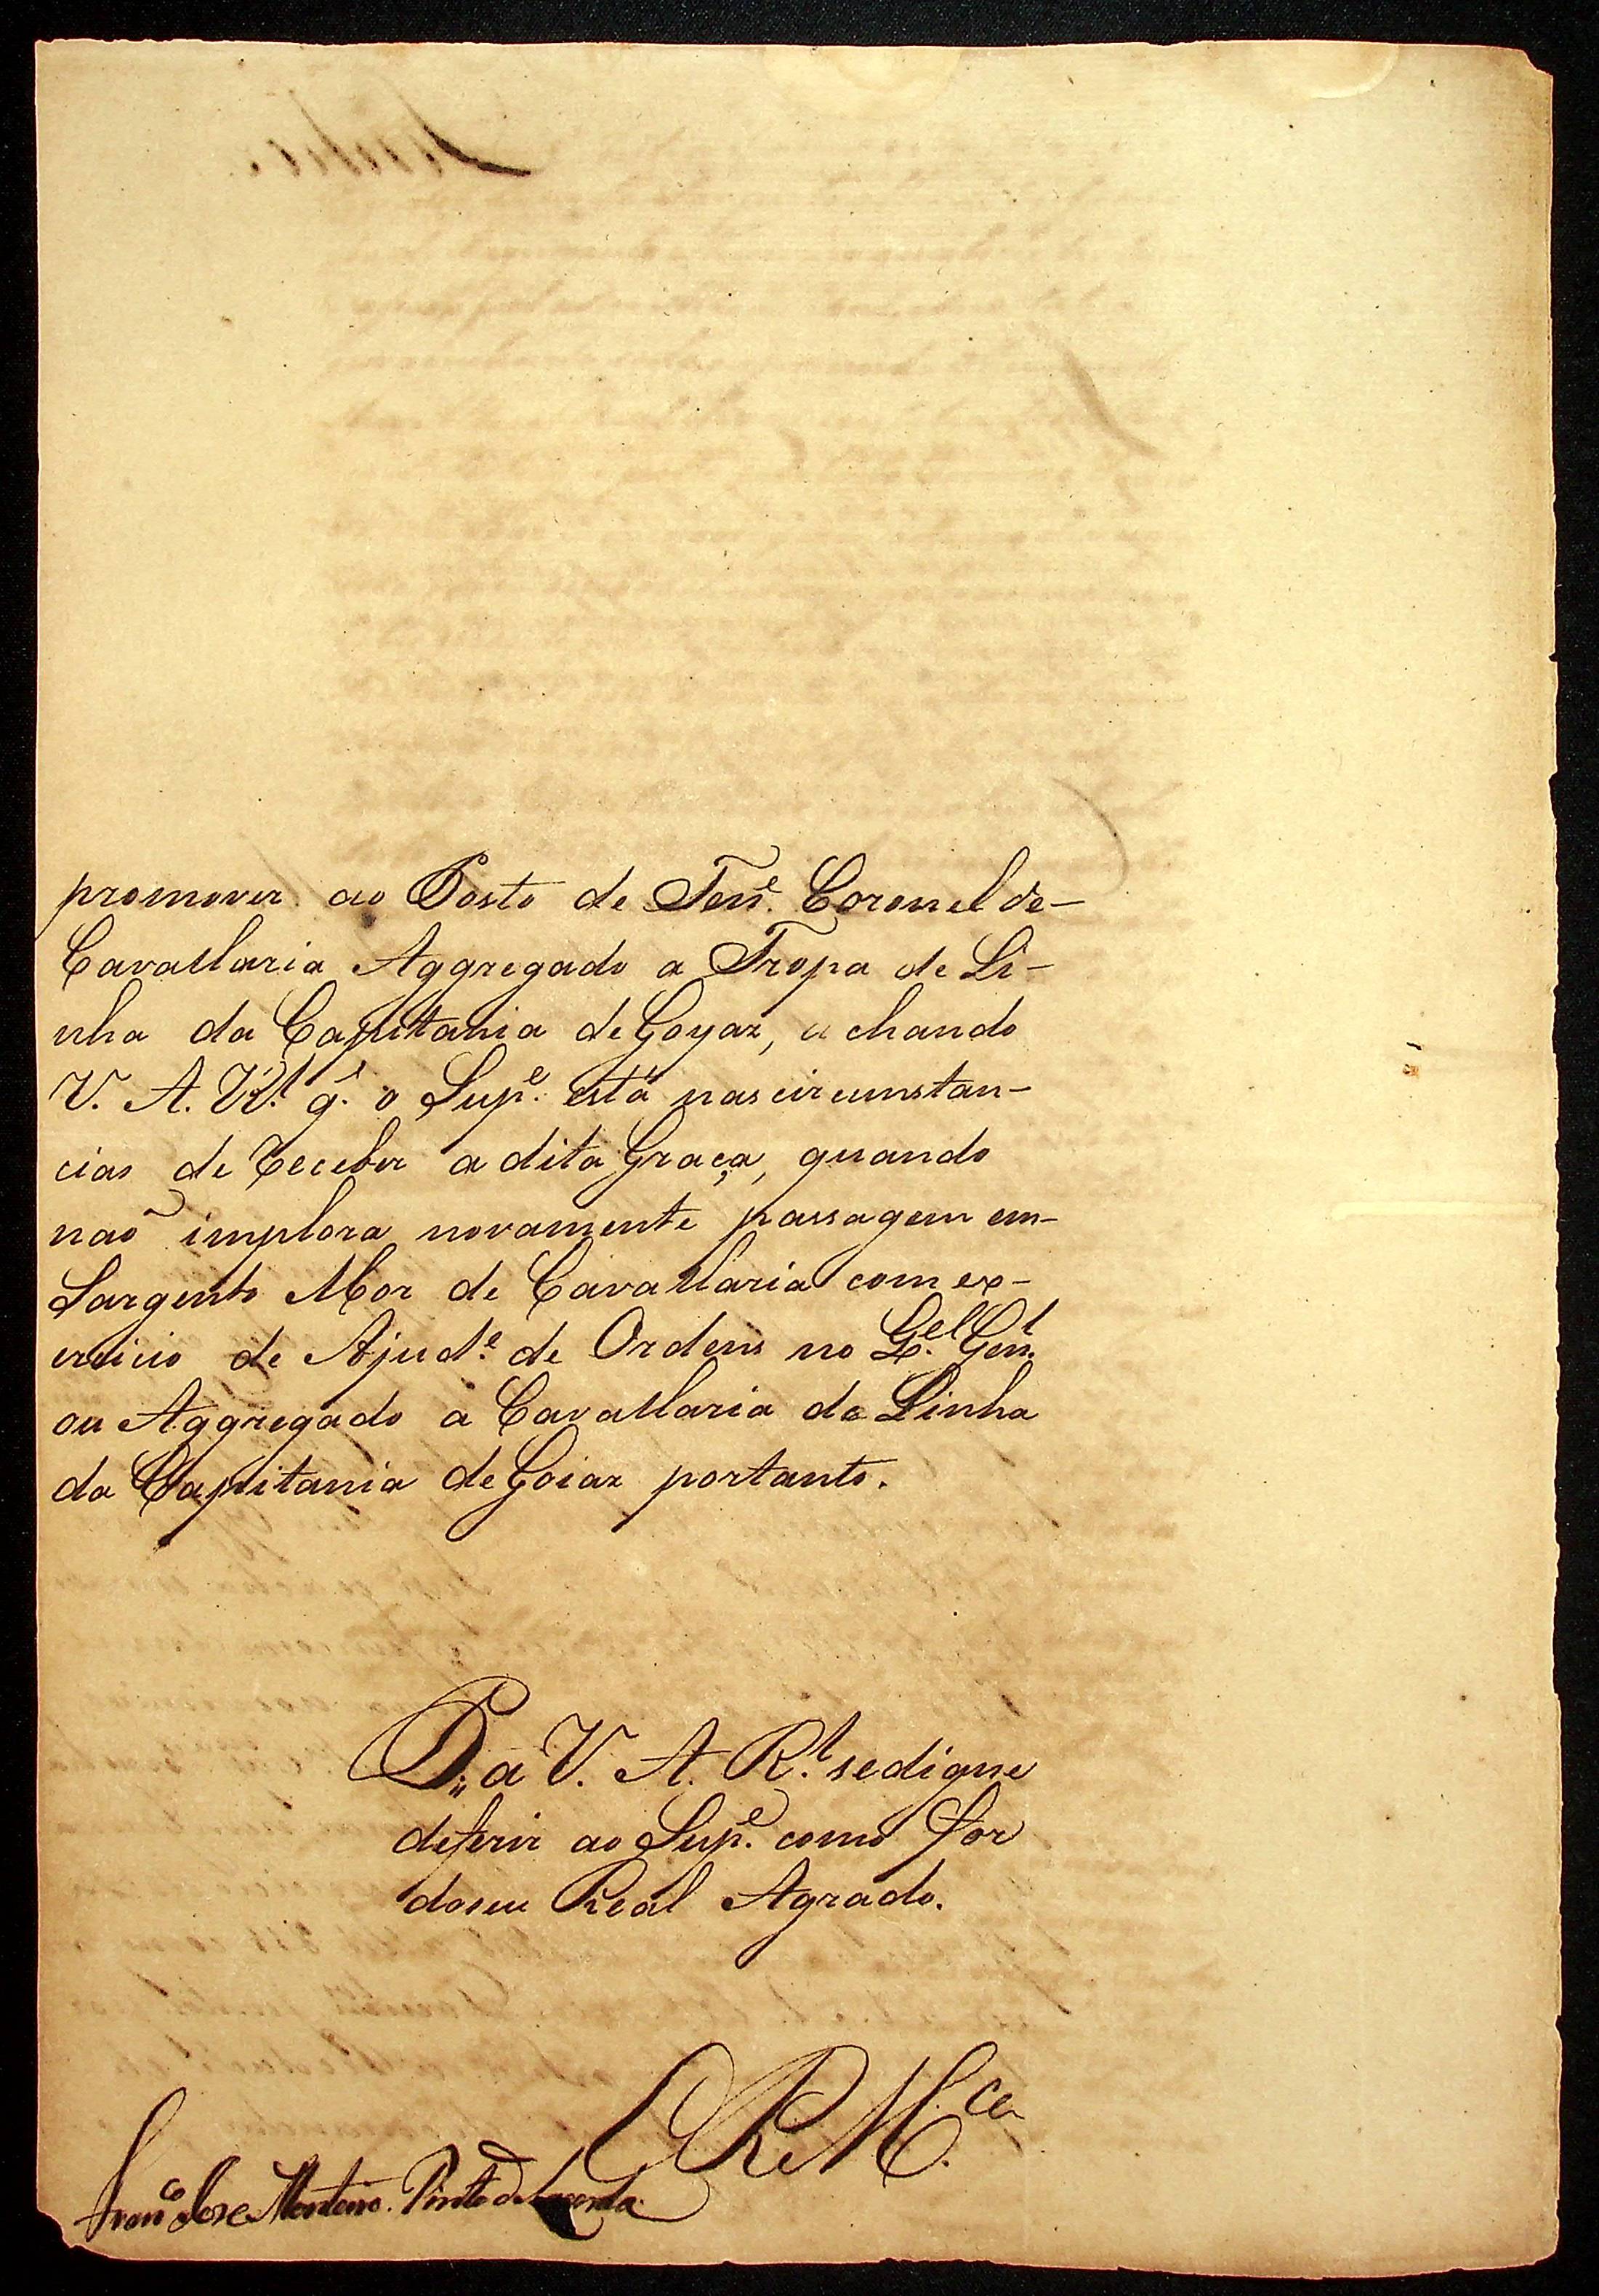 promover ao Posto de Tenᵉ. Coronel de-
Cavallaria Aggregado a Tropa de Li-
nha da Capitania de Goyaz, achando
V. A. R.ˡ q.ᵉ o Supᵉ. está nas circunstan-
cias de receber a dita Graça, quando
naõ implora novamente passagem em-
Sargento Mor de Cavallaria com ex-
ercicio de Ajudᵉ. de Ordens no Q.ᵉˡ Gen.ˡ
ou Aggregado a Cavallaria de Linha
da Capitania de Goiaz portanto.
P. a V. A. R.ˡ se digne
deferir ao Supᵉ. como for
do seu Real Agrado.
E R. M.ᶜᵉ
Franᶜᵒ Jose Monteiro Pinto de Lacerda